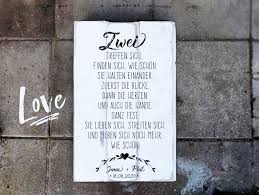 Zwei
TREFFEN SICH.
FINDEN SICH. WIE SCHÖN.
SIE HALTEN EINANDER
ZUERST DIE BLICKE.
DANN DIE HERZEN
UND AUCH DIE HÄNDE
GANZ FEST.
SIE LIEBEN SICH. STREITEN SICH.
UND LIEBEN SICH NOCH MEHR.
WIE SCHÖN.
+ 16.05.2020 +
Love